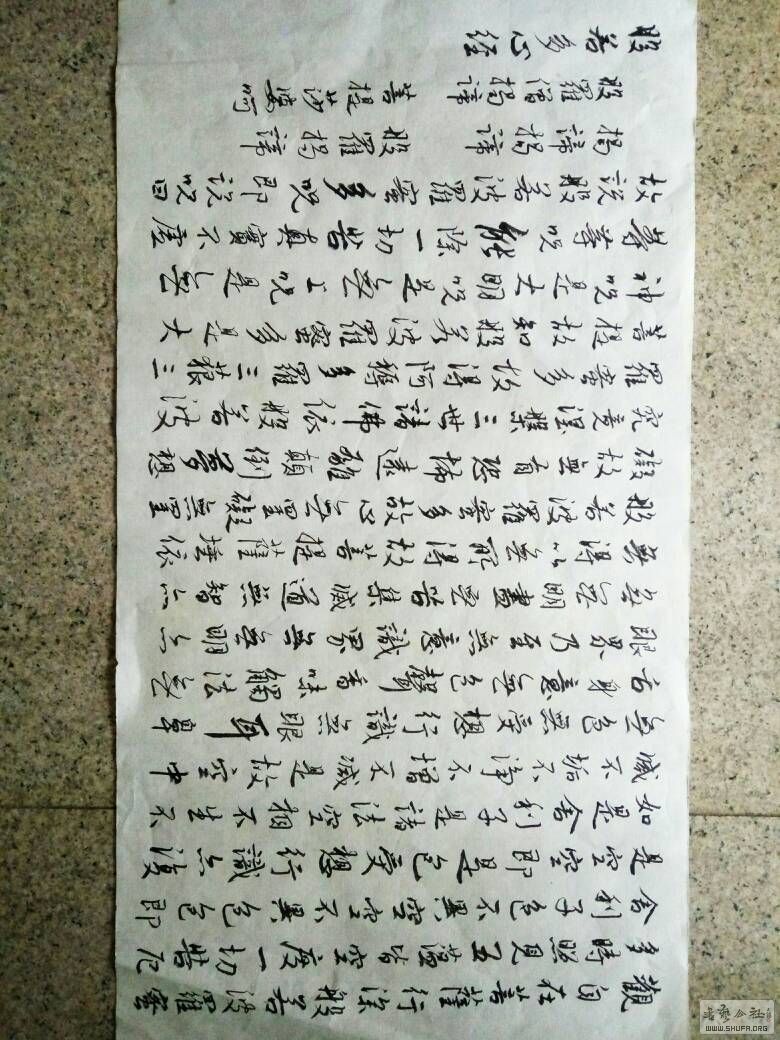 觀自在菩薩行深般若波羅蜜
多時照見五蘊皆空度一切苦厄
舍利子色不異空空不異色色即
是空空即是色受想行識亦復
如是舍利子是諸法空相不生不
滅不垢不淨不增不滅是故空中
無色無受想行識無眼耳鼻
舌身意無色聲香味觸法無
眼界乃至無意識界無無明亦
無無明盡無苦集滅道無智亦
無得以無所得故菩提薩埵依
般若波羅蜜多故心無罣礙無罣
礙故無有恐怖遠離顛倒夢想
究竟涅槃三世諸佛依般若波
羅蜜多故得阿耨多羅三藐三
菩提故知般若波羅蜜多是大
神咒是大明咒是無上咒是無
等等咒能除一切苦真實不虛
故說般若波羅蜜多咒即说咒曰
揭諦揭谛 般羅揭諦
般羅僧揭谛 菩提莎婆呵
般若多心经
WWW.SHUFA.ORG